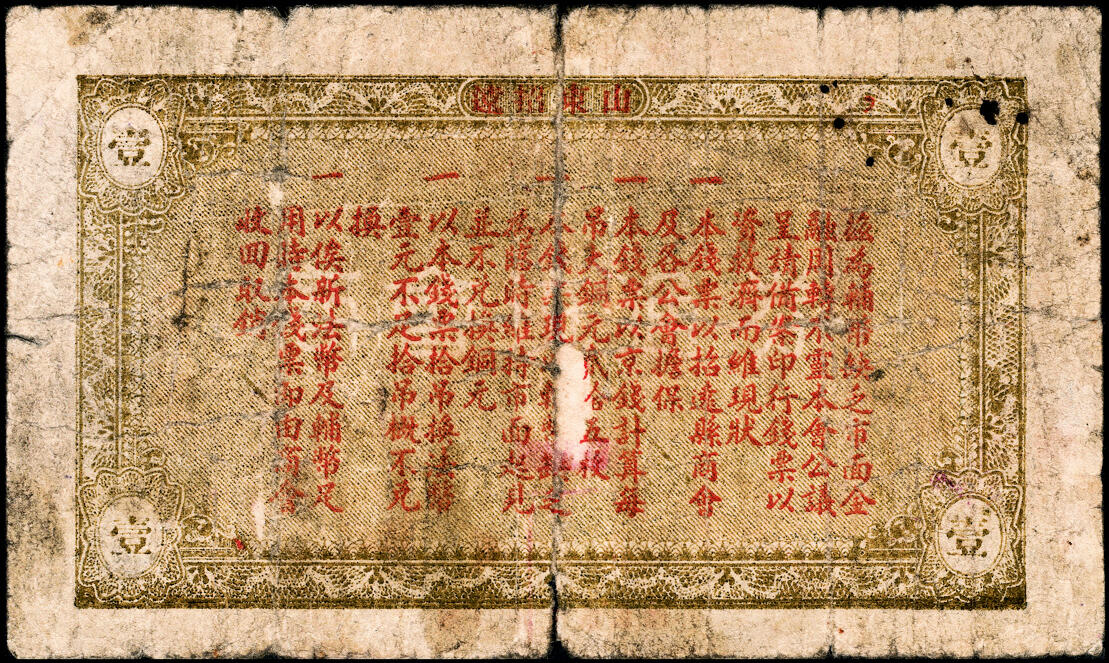 山東招遠
壹
壹
茲為輔幣缺乏市面金
融周轉不靈本會公議
呈請備案印行錢票以
資救濟而維現狀
一 本錢票以招遠縣商會
及各公會擔保
一 本錢票以京錢計算每
吊支銅元貳拾五枚
一 本錢 現 之
為臨時維持市面起見
並不兌換銅元
一 以本錢票拾吊換法幣
壹元不足拾吊概不兌
換
一 以俟新法幣及輔幣足
用時本錢票即由商會
收回取銷
壹
壹